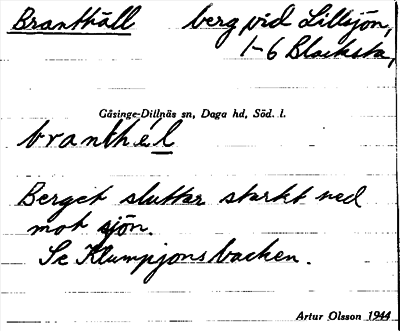 Branthäll berg vid Lillsjön,
1-6 Blacksta,
Gåsinge-Dillnäs sn, Daga hd, Söd. l.
branthel
Berget sluttar starkt ned
mot sjön.
Se Klumpjonsbacken.
Artur Olsson 1944